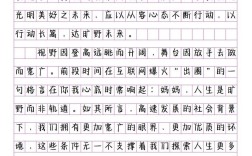 光明美好之未来，应以从容心态不断行动，以
行动长篇，达旷野未来。
视野因登高骋目而开阔，舞台因放手去做
而宽广。前段时间在互联网爆火“出圈”的一
句格言在你我心底时常响起：妈妈，人生是旷
野而非轨道。如其所言，高速发展的社会背景
下，我们拥有更加宽广的眼界，更加优质的环
境，这些条件无一不支撑着我们探索人生更多